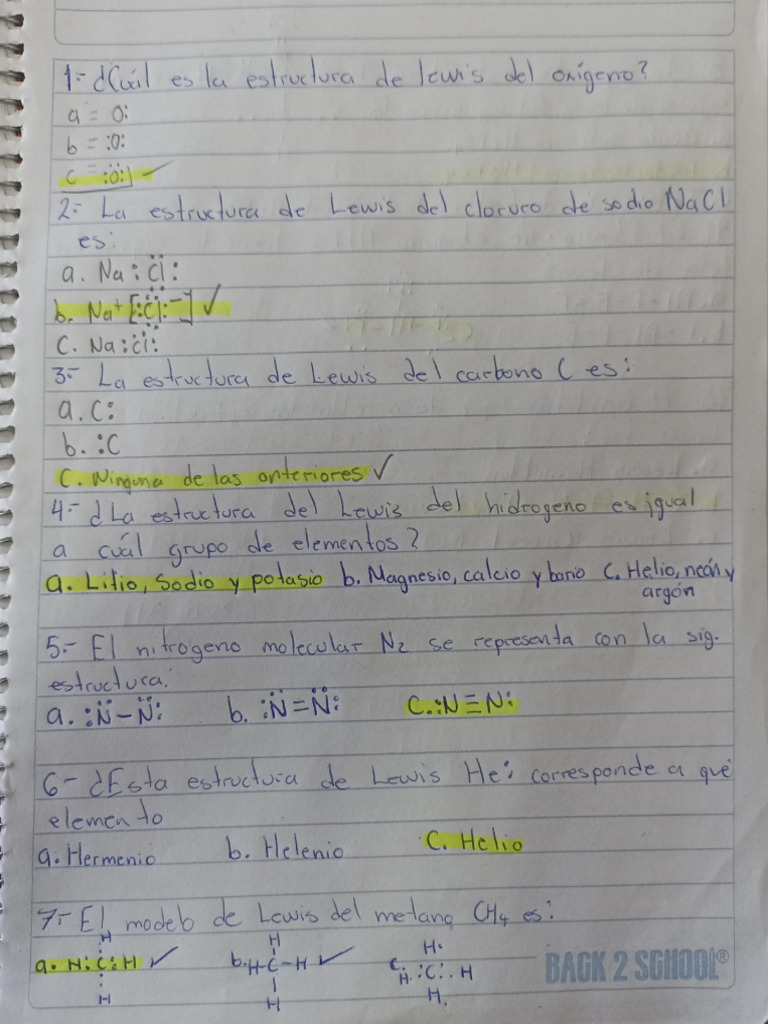 1.- ¿Cuál es la estructura de lewis del oxígeno?
a = O:
b = :O:
c = :Ö: ✓
2.- La estructura de Lewis del cloruro de sodio NaCl
es:
a. Na:C̈l:
b. Na⁺[:C̈l:⁻] ✓
C. Na:C̈l:
3.- La estructura de Lewis del carbono C es:
a. C:
b. :C
C. Ninguna de las anteriores ✓
4.- ¿La estructura del Lewis del hidrogeno es igual
a cuál grupo de elementos?
a. Litio, Sodio y potasio b. Magnesio, calcio y bario C. Helio, neón y
argón
5.- El nitrogeno molecular N₂ se representa con la sig.
estructura:
a. :N̈-N̈: b. :N̈=N̈: C. :N≡N:
6- ¿Esta estructura de Lewis He: corresponde a qué
elemento
a. Hermenio b. Helenio C. Helio
7.- El modelo de Lewis del metano CH₄ es:
H H H·
a. H:C:H ✓ b. H-C-H ✓ c. H. :C:. H
H H H.
BACK 2 SCHOOL®